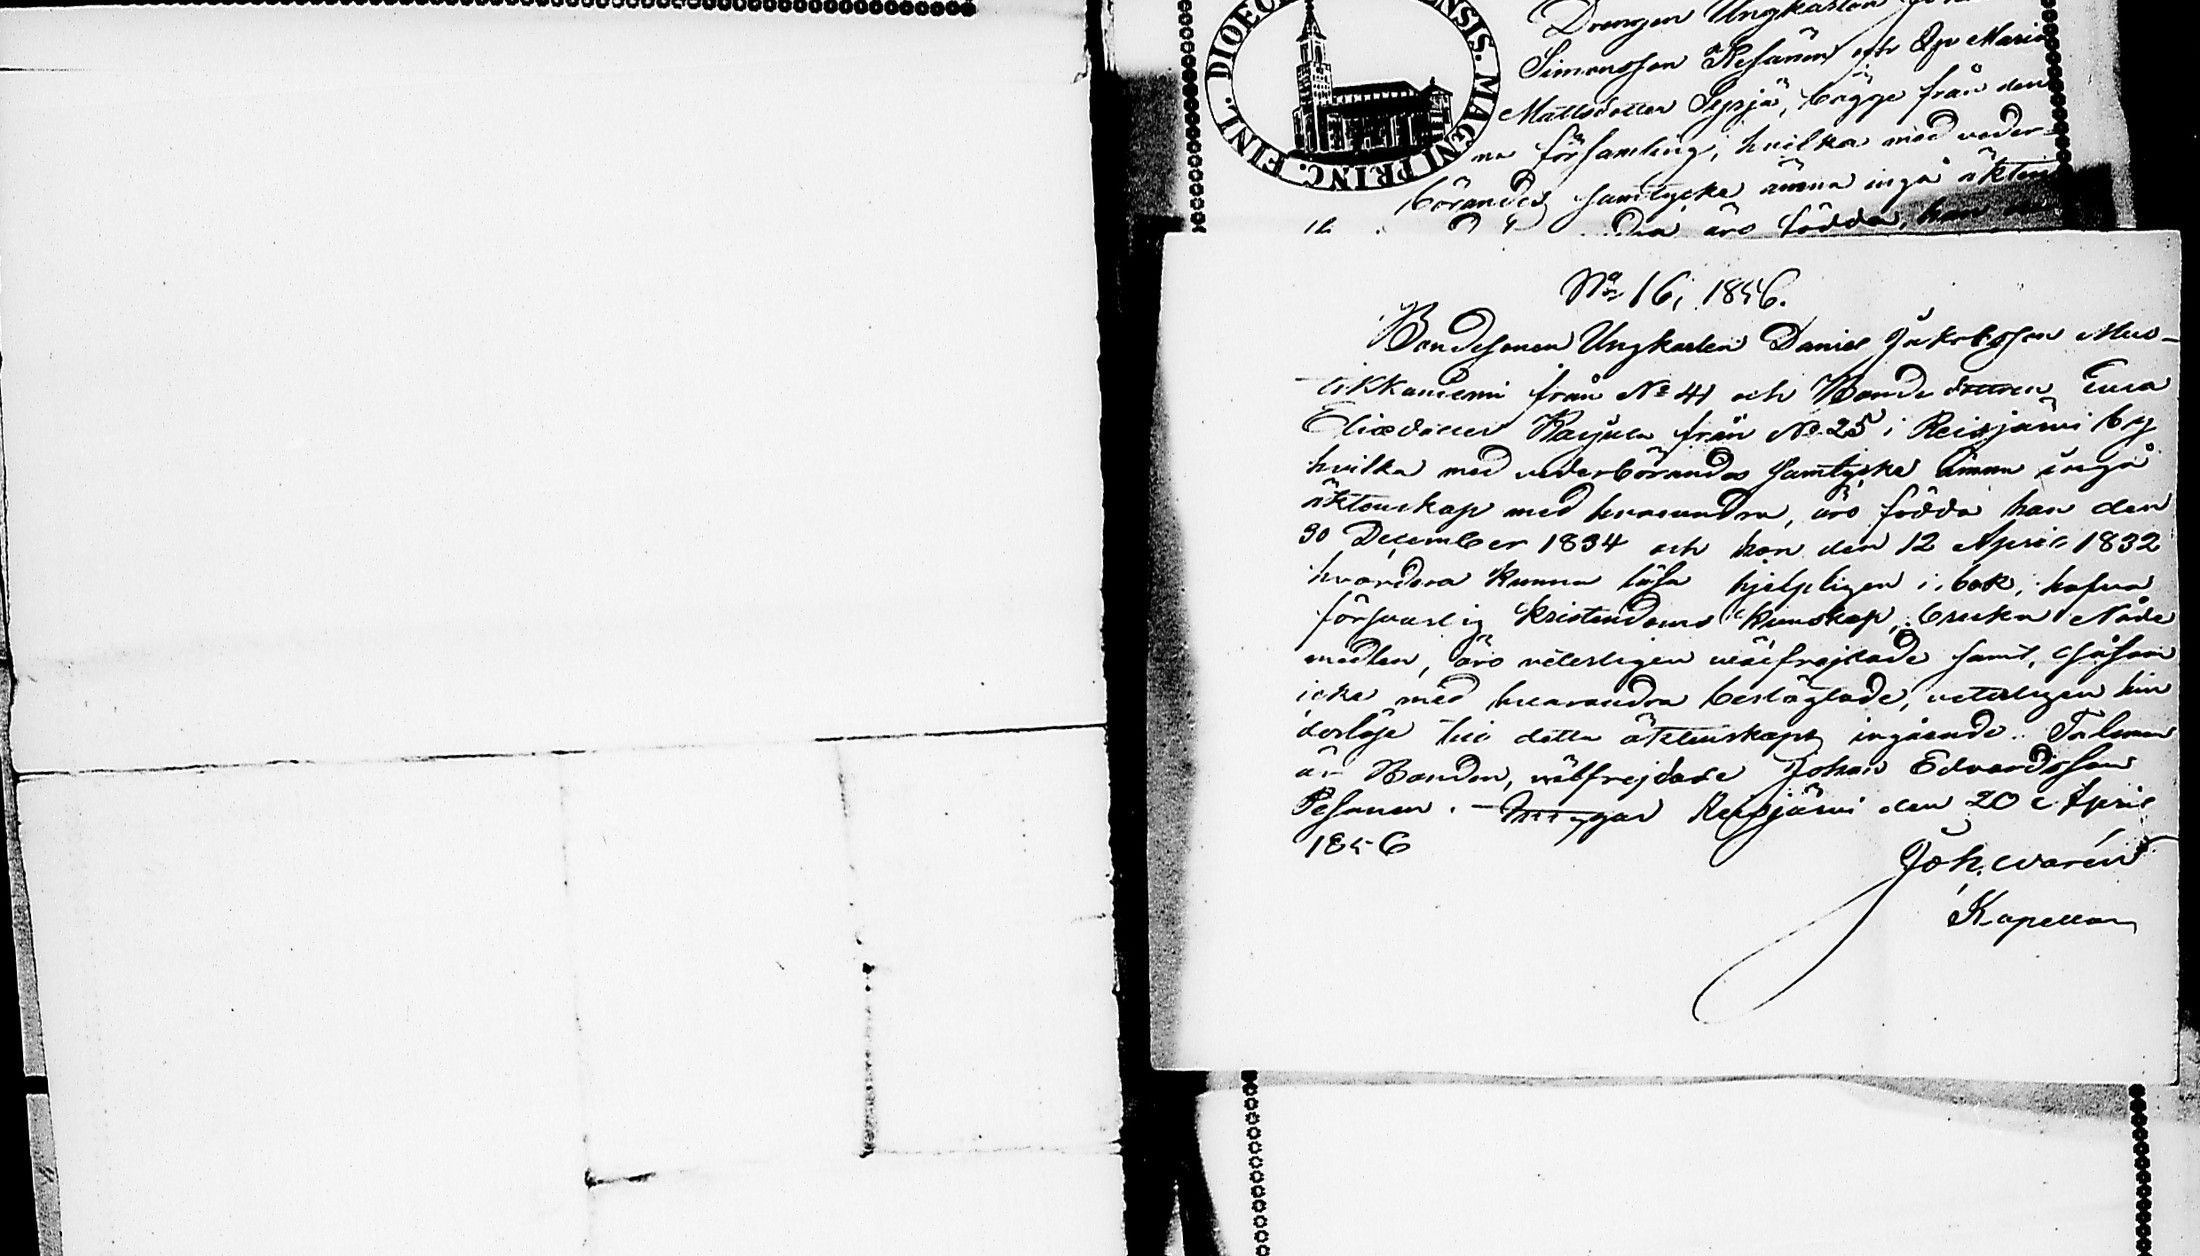 Drengen Ungkarlen
Simonsson Kesänen och Pig. Maria
Mattsdotter Pyrjä, bägge från den
na församling, hvilka med veder-
börandes samtycke ämna ingå äkten
äro födda, han
FINL. DIOEC ENSIS. MAGNI PRINC.
No 16, 1856.
Bondesonen Ungkarlen Daniel Jakobsson Mus-
tikkaniemi från No 41 och Bonde dottren Eva
Eliædotter Karjula från No 25 i Reisjärvi by
hvilka med vederbörandes samtycke ämna ingå
äktenskap med hvarandra, äro födda han den
30 December 1834 och hon den 12 April 1832
hvardera kunna läsa hjelpligen i bok, hafva
försvarlig kristendoms kunskap, bruka Nåde
medlen, äro veterligen välfrejdade samt, såsom
icke med hvarandra beslägtade, veterligen hin
derlöse till detta äktenskaps ingående. Talman
är Bonden, välfrejdade Johan Edvardsson
Pesonen. Intygar Reisjärvi den 20 April
1856
Joh. Warén
Kapellan